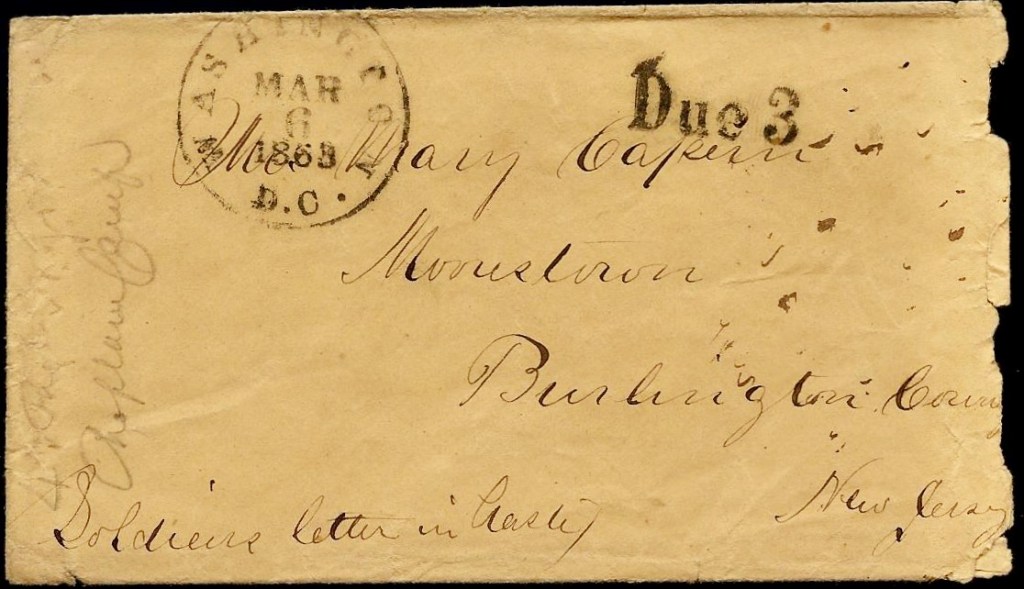 WASHINGTON
MAR
6
1863
D.C.
Due 3
Mrs Mary Capern
Moorestown
Burlington Coun
New Jersey
Soldiers letter in haste
Chaplain